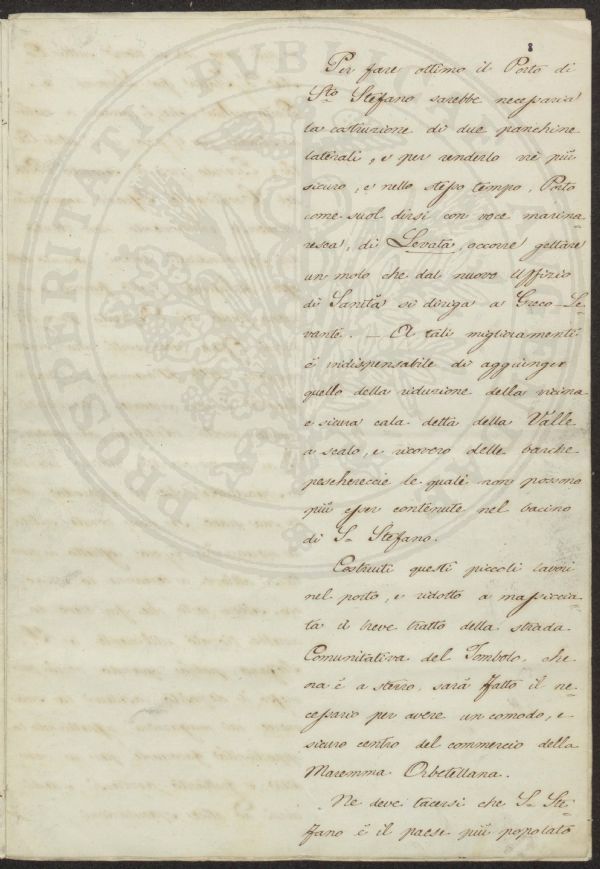 8
Per fare ottimo il Porto di
Sto Stefano sarebbe necessaria
la costruzione di due panchine
laterali, e per renderlo vie più
sicuro, e nello stesso tempo, Porto
come suol dirsi con voce marina=
resca, di Levata, occorre gettare
un molo che dal nuovo Uffizio
di Sanità si diriga a Greco-Le=
vante. — A tali miglioramenti
è indispensabile di aggiunger
quello della riduzione della vicina
e sicura cala detta della Valle
a scalo, e ricovero delle barche
pescherecce le quali non possono
più esser contenute nel bacino
di S. Stefano.
Costruiti questi piccoli lavori
nel porto, e ridotto a massiccia=
ta il breve tratto della strada
Comunitativa del Tombolo, che
ora è a sterro, sarà fatto il ne=
cessario per avere un comodo, e
sicuro centro del commercio della
Maremma Orbetellana.
Ne deve tacersi che S. Ste=
fano è il paese più popolato
PROSPERITATI PUBLICAE